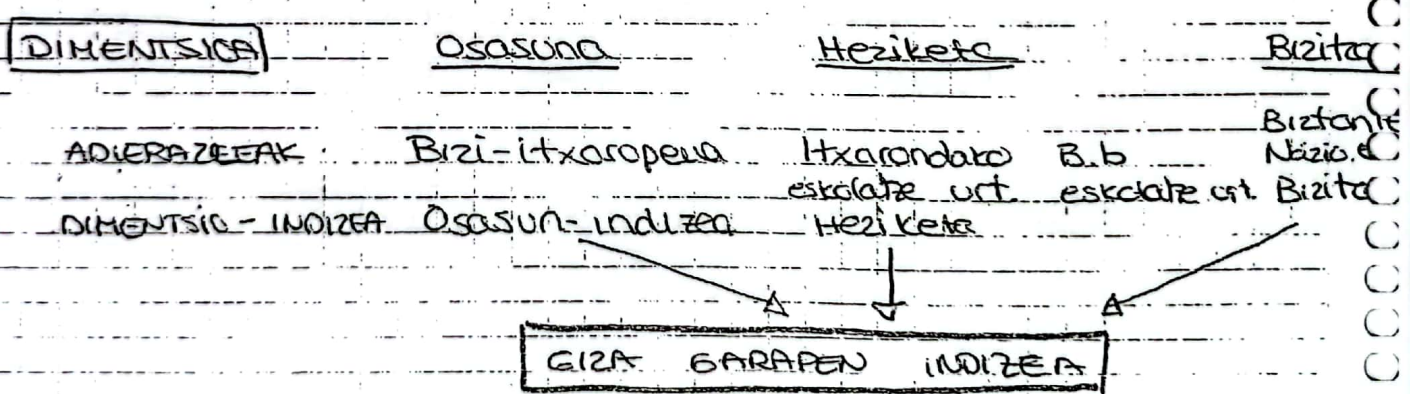 DIMENTSIOA Osasuna Heziketa Bizita
Biztanle
ADIERAZLEAK: Bizi-itxaropena Itxarondako B.b Nazio.
eskolatze urt. eskolatze urt. Bizita
DIMENTSIO-INDIZEA Osasun-indizea Heziketa
GIZA GARAPEN INDIZEA